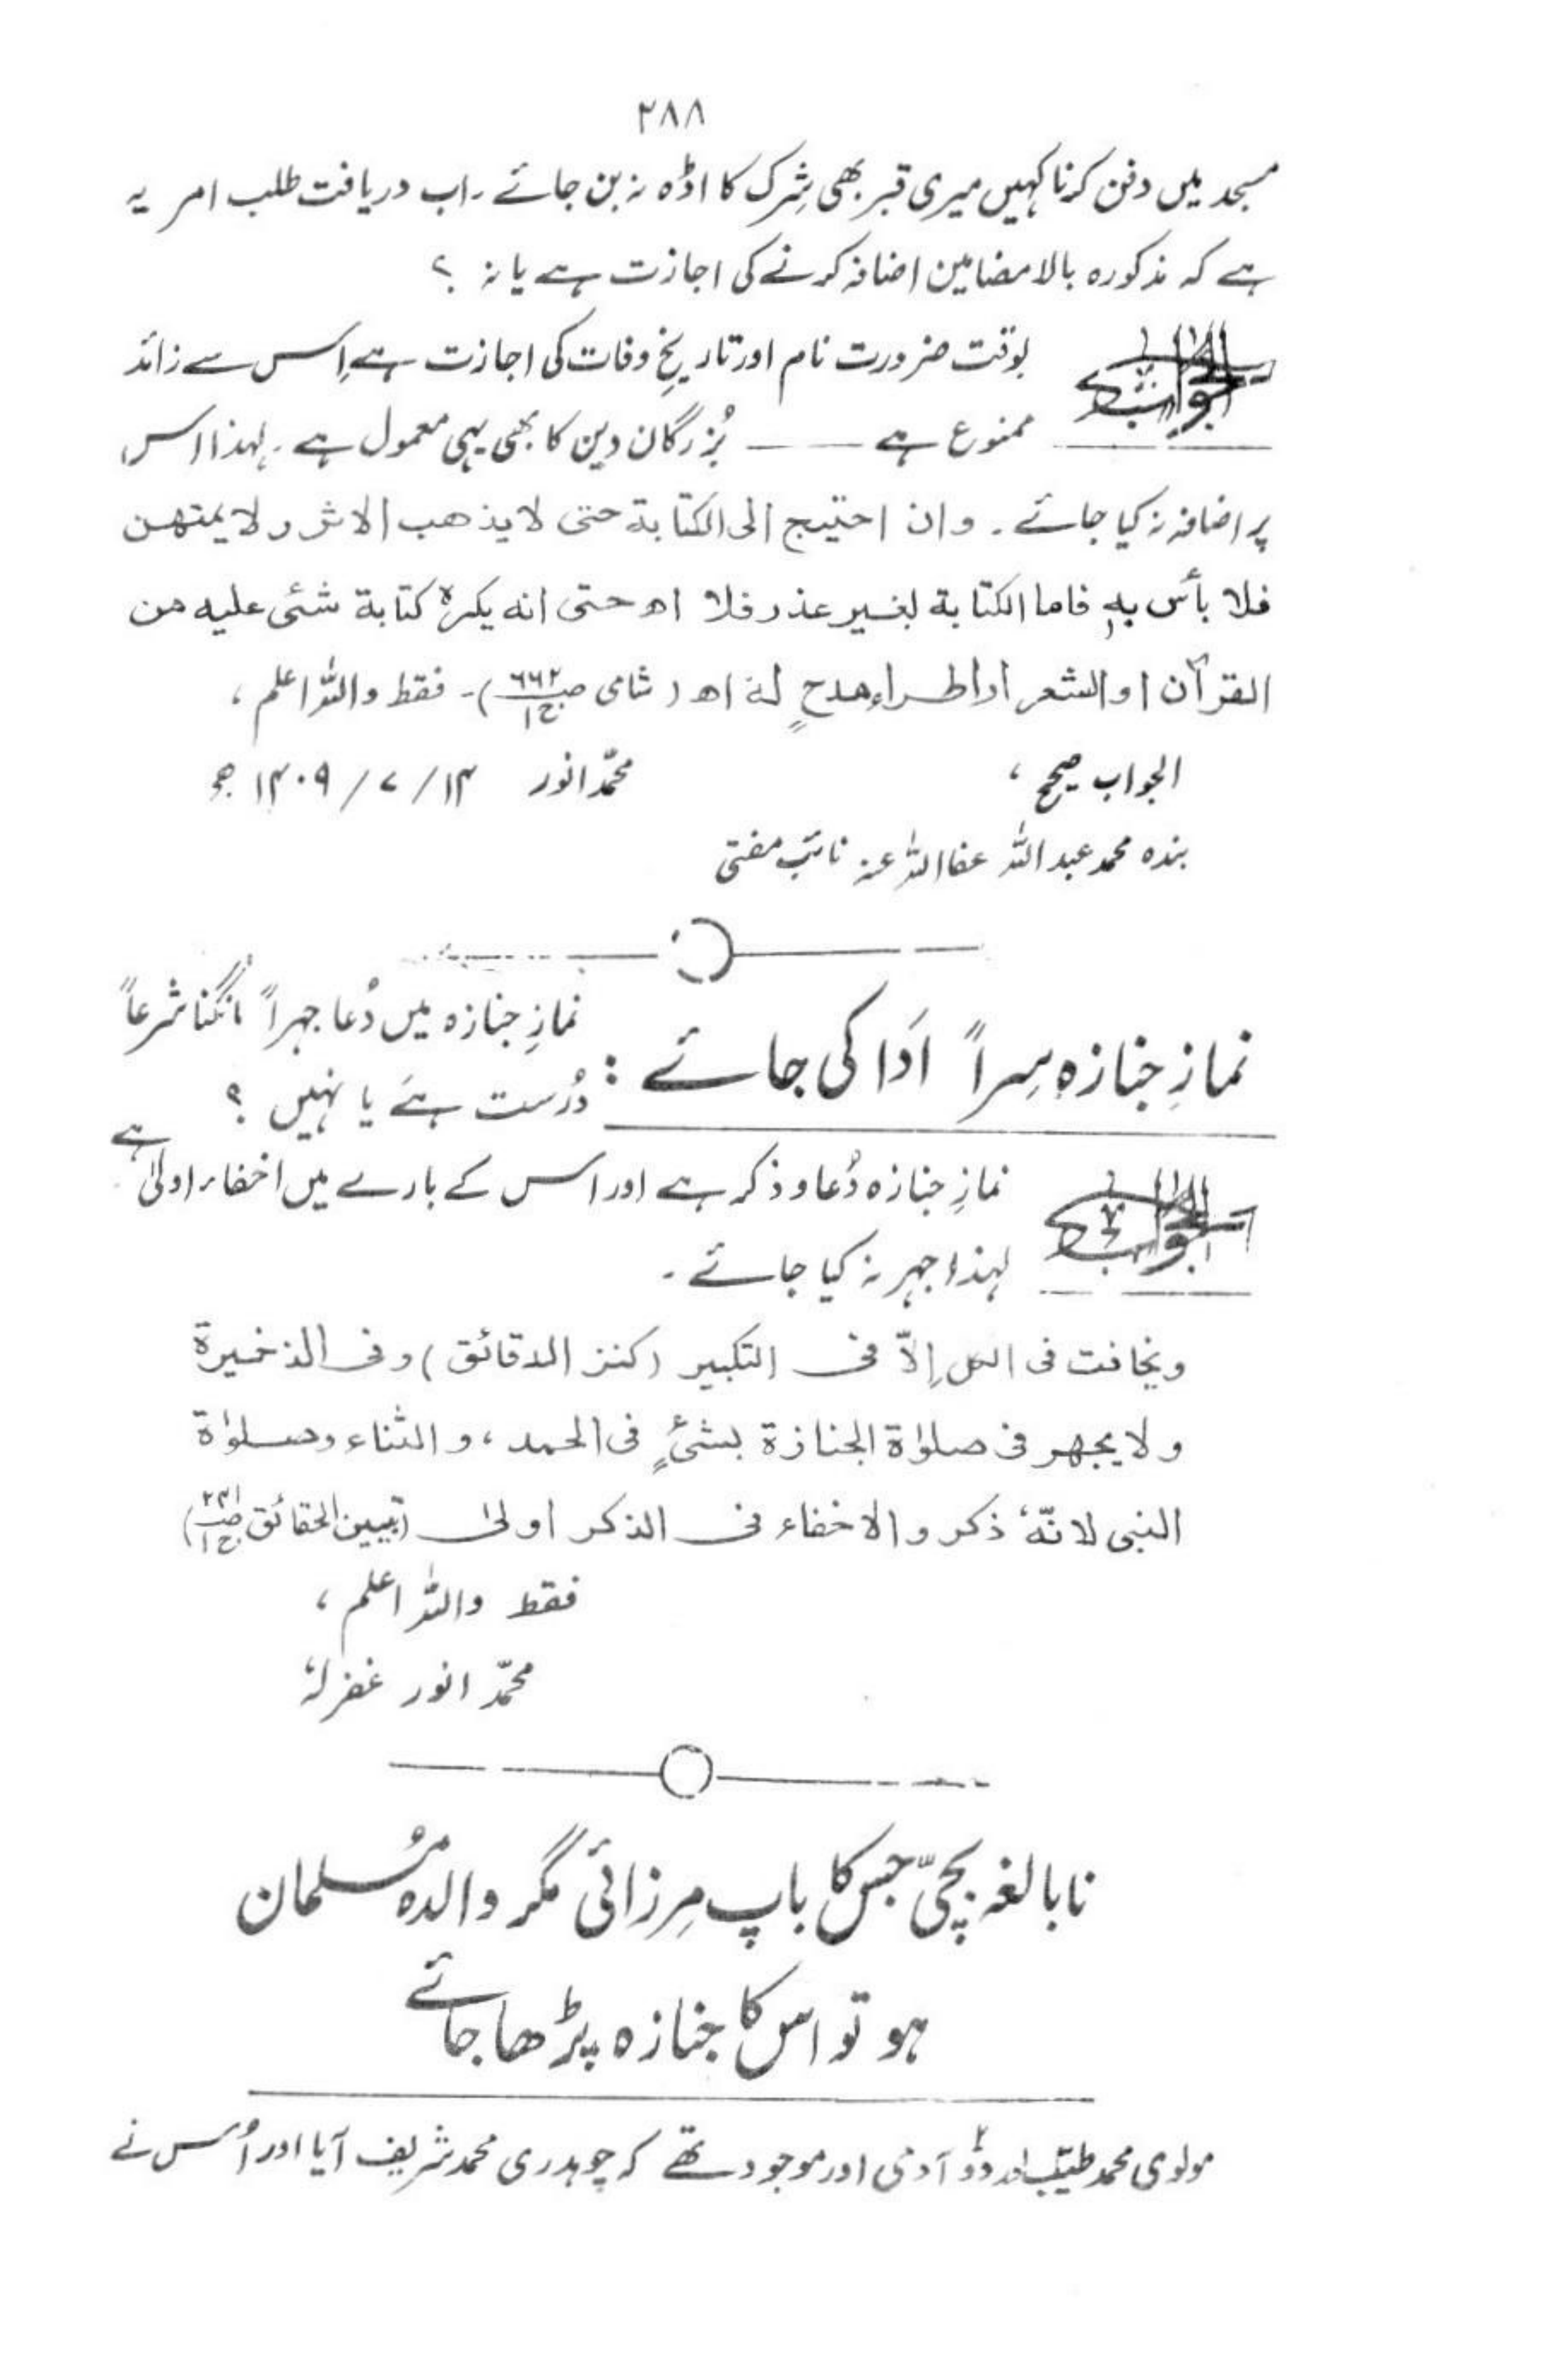 ۲۸۸
مسجد میں دفن کرنا کہیں میری قبر بھی شِرک کا اڈہ نہ بن جائے ۔ اب دریافت طلب امر یہ
ہے کہ مذکورہ بالا مضامین اضافہ کرنے کی اجازت ہے یا نہ ؟
الجواب بوقت ضرورت نام اور تاریخِ وفات کی اجازت ہے اِس سے زائد
ممنوع ہے —— بُزرگان دین کا بھی یہی معمول ہے ۔ لہذا اس
پر اضافہ نہ کیا جائے ۔ وان احتیج الی الکتابة حتی لا یذھب الاثر ولا یمتھن
فلا بأس بہٖ فاما الکتابة لغیر عذر فلا اھ حتی انه یکرہ کتابة شئی علیه من
القرآن او الشعر او اطراء مدحٍ لہٗ اھ ( شامی ص۶۶۲ ج۱)۔ فقط واللہ اعلم ،
الجواب صحیح ، محمّد انور ۱۴ / ۷ / ۱۴۰۹ ھ
بندہ محمد عبداللہ عفا اللہ عنہ نائب مفتی
نمازِ جنازہ سِراً اَدا کی جائے : نمازِ جنازہ میں دُعا جہراً مانگنا شرعاً
دُرست ہے یا نہیں ؟
الجواب نمازِ جنازہ دُعا و ذکر ہے اور اس کے بارے میں اخفاء اولیٰ ہے
لہذا جہر نہ کیا جائے ۔
ویخافت فی الکل اِلاّ فی التکبیر (کنز الدقائق) وفی الذخیرة
ولا یجھر فی صلوٰة الجنازة بشئٍ فی الحمد ، والثناء وصلوٰة
النبی لانّہٗ ذکر والاخفاء فی الذکر اولیٰ (تبیین الحقائق ص۲۴۱ ج۱)
فقط واللہ اعلم ،
محمّد انور غفرلہٗ
نابالغہ بچّی جس کا باپ مِرزائی مگر والدہ مُسلمان
ہو تو اس کا جنازہ پڑھا جائے
مولوی محمد طیّب اور دُو۲ آدمی اور موجود تھے کہ چوہدری محمد شریف آیا اور اُس نے